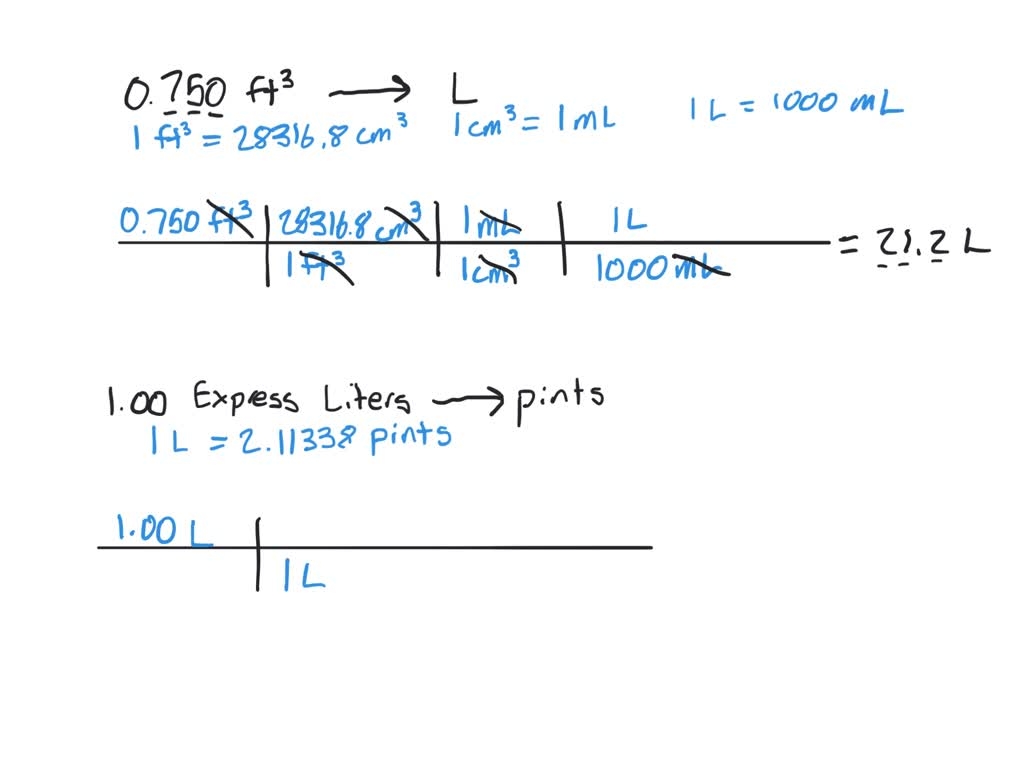 0.750 ft³ → L
1 ft³ = 28316.8 cm³ 1 cm³ = 1 mL 1 L = 1000 mL
0.750 ft³ | 28316.8 cm³ | 1 mL | 1 L
1 ft³ | 1 cm³ | 1000 mL
= 21.2 L
1.00 Express Liters → pints
1 L = 2.11338 pints
1.00 L
1 L